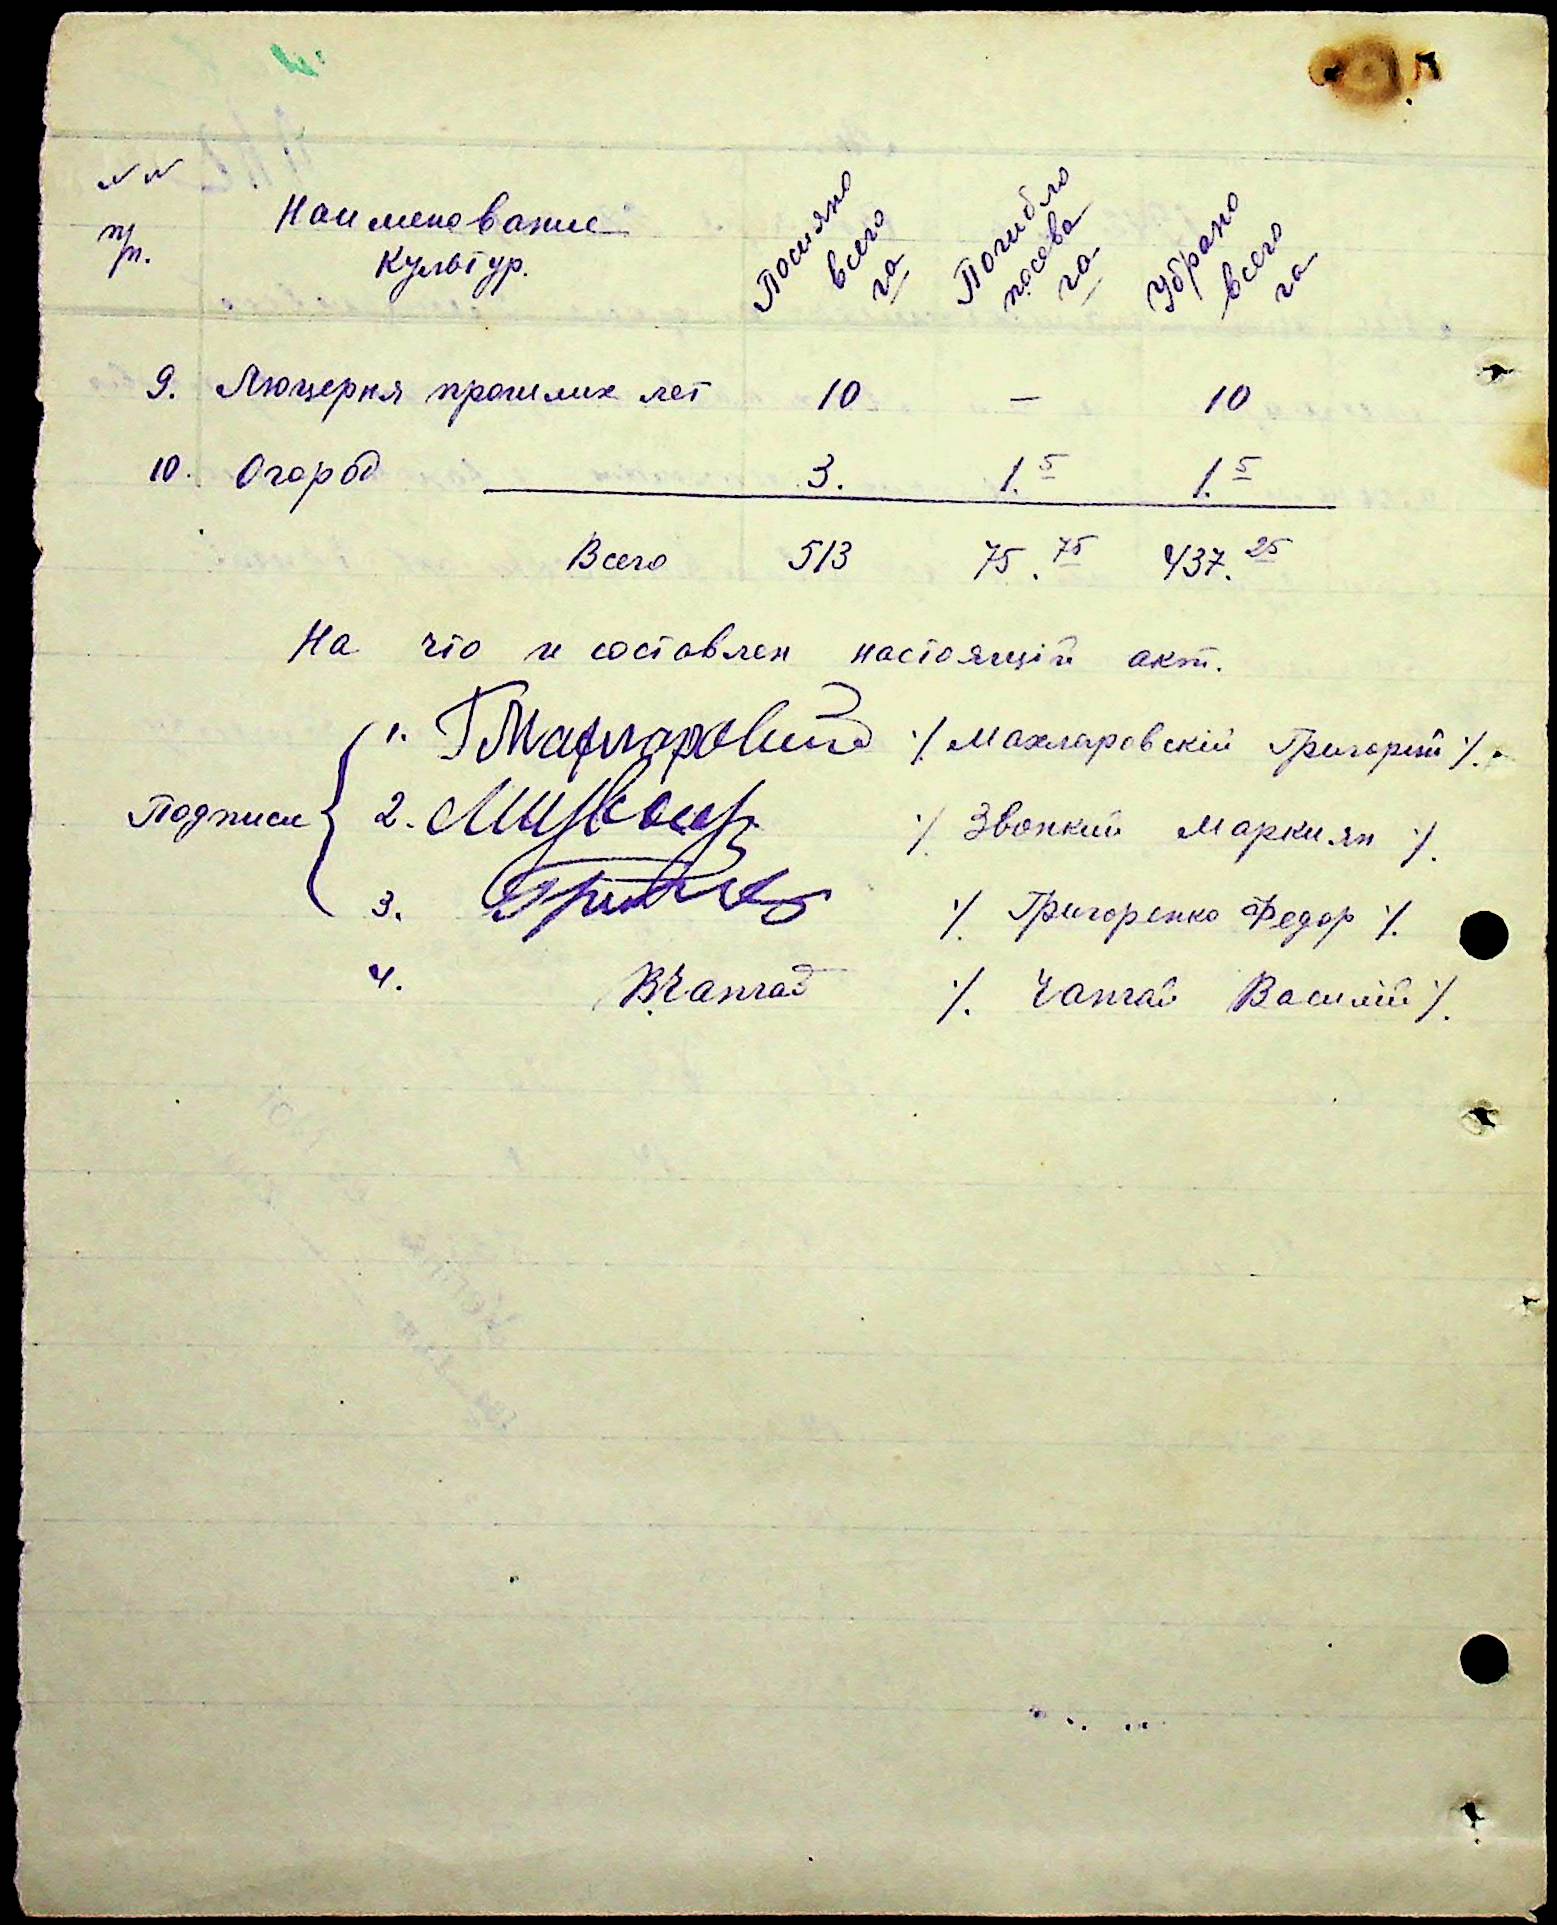 №№ п/п. Наименование Культур. Посияно всего га Погибло посева га Убрано всего га
9. Люцерня прошлих лет 10 — 10
10. Огород 3. 1.5 1.5
Всего 513 75.75 437.25
На что и составлен настоящій акт.
Подписи
1. /. Махларовскій Григорий /.
2. /. Звонкий Маркиян /.
3. /. Григоренко Федор /.
4. ВЧапгав /. Чапгав Василий /.